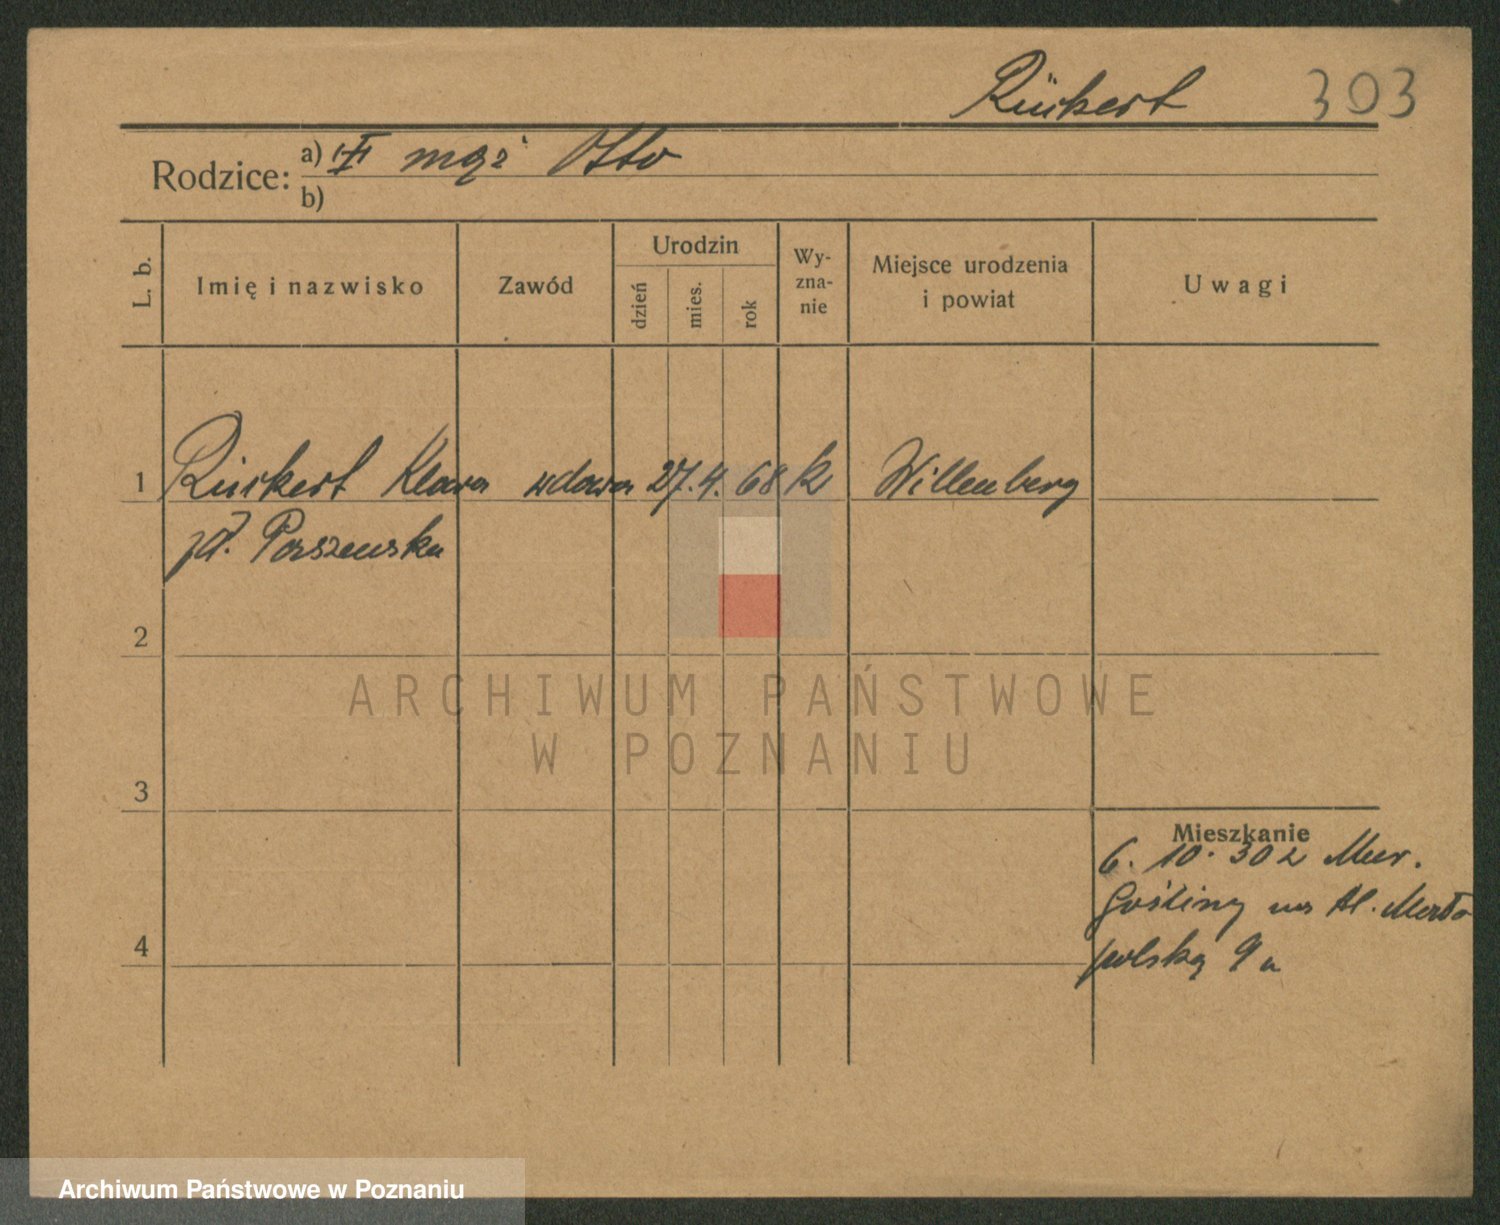 Rückert 303
Rodzice: a) III mąż Otto
b)
L. b. Imię i nazwisko Zawód Urodzin dzień mies. rok Wyznanie Miejsce urodzenia i powiat Uwagi
1 Rückert Klara wdowa 27. 4. 68 k Willenberg
Parszewska
2
ARCHIWUM PAŃSTWOWE
W POZNANIU
3
Mieszkanie
6. 10. 30 z Mur.
Gośliny na Al. Mało
4 polską 9a
Archiwum Państwowe w Poznaniu